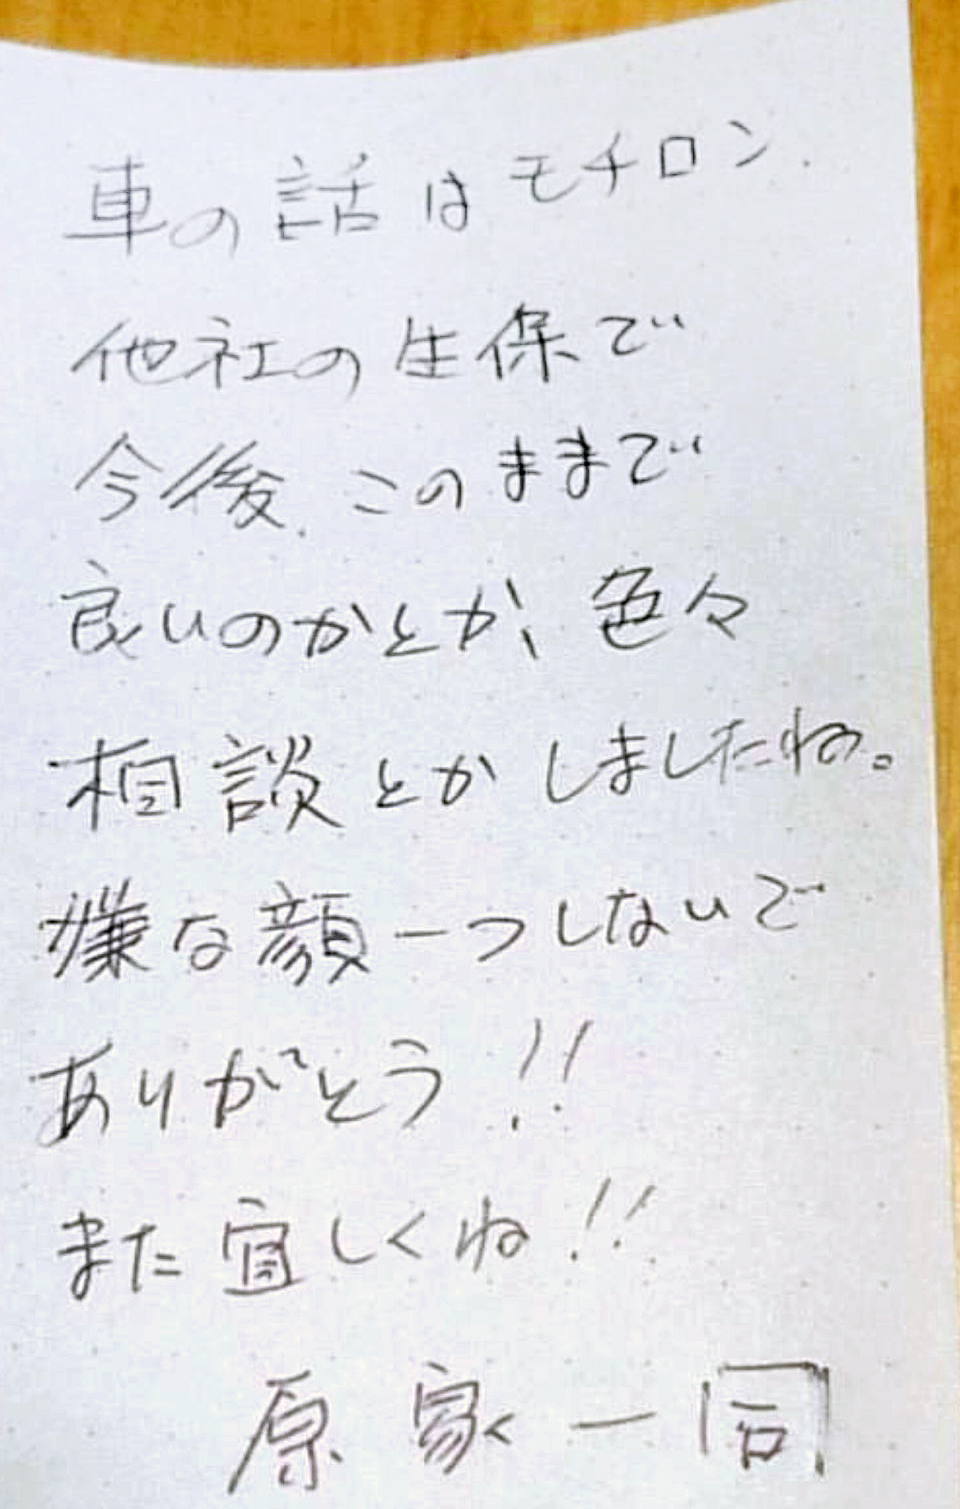 車の話はモチロン、
他社の生保で
今後、このままで
良いのかとか、色々
相談とかしましたね。
嫌な顔一つしないで
ありがとう!!
また宜しくね!!
原家一同